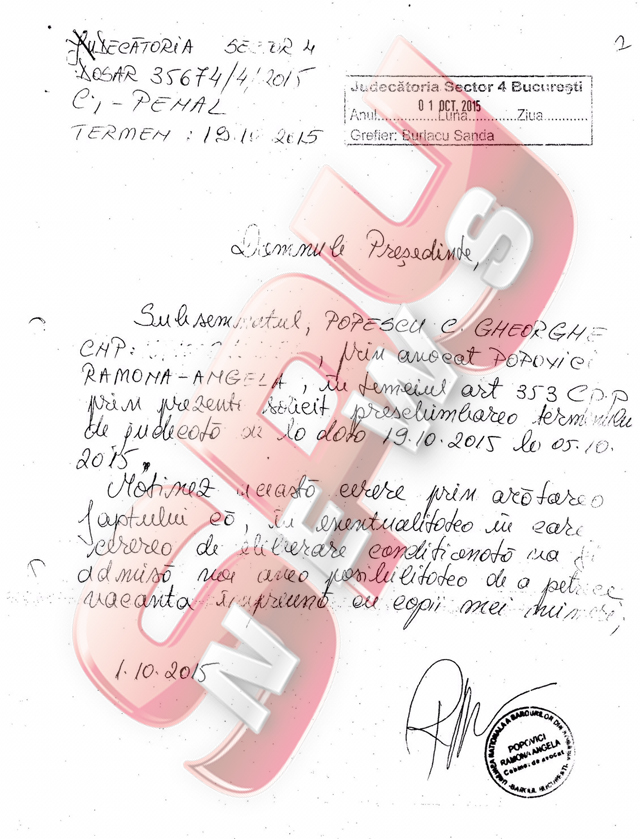 2
JUDECĂTORIA SECTOR 4
DOSAR 35674/4/2015
C; - PENAL
TERMEN : 19.10 2015
Judecătoria Sector 4 Bucureşti
01 OCT. 2015
Anul............Luna............Ziua............
Grefier: Burlacu Sanda
Domnule Preşedinte,
Subsemnatul, POPESCU C. GHEORGHE
CNP: , prin avocat POPOVICI
RAMONA-ANGELA, în temeiul art 353 CPP
prin prezenta solicit preschimbarea termenului
de judecată de la data 19.10.2015 la 05.10.
2015.
Motivez această cerere prin arătarea
faptului că, în eventualitatea în care
cererea de eliberare condiţionată va fi
admisă voi avea posibilitatea de a petrece
vacanta împreună cu copii mei minori,
1.10.2015
UNIUNEA NATIONALA A BAROURILOR DIN ROMANIA
POPOVICI
RAMONA ANGELA
Cabinet de avocat
BAROUL BUCURESTI
SRU
NEWS